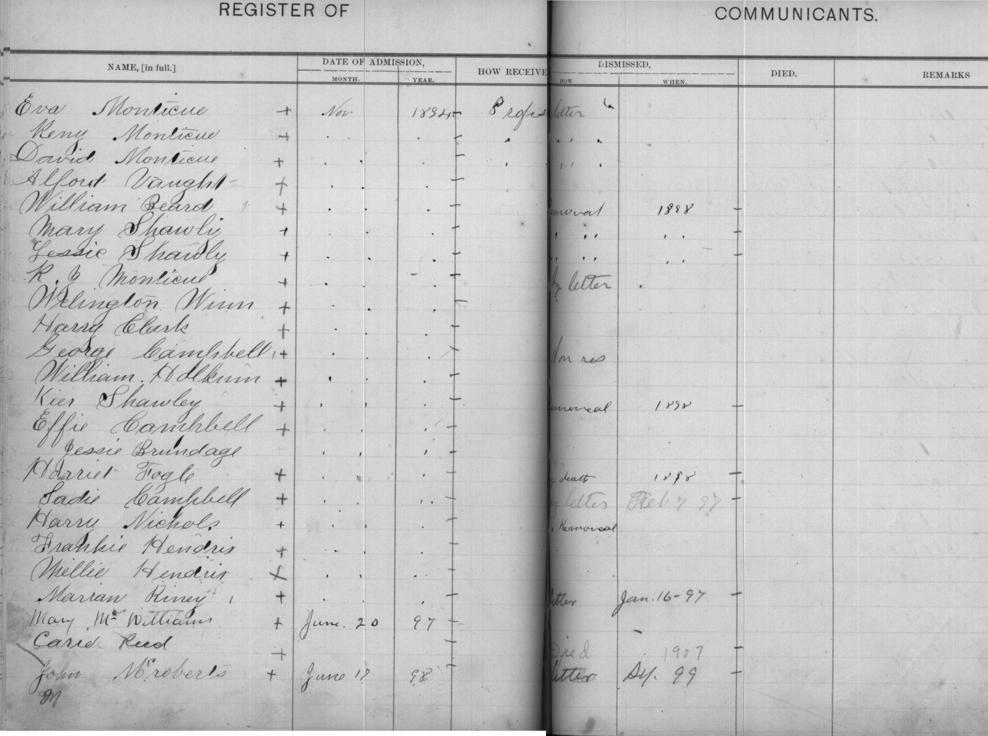 REGISTER OF COMMUNICANTS.
NAME, [in full.] DATE OF ADMISSION, HOW RECEIVE DISMISSED, DIED. REMARKS
MONTH. YEAR. HOW WHEN.
Eva Monticue + Nov 1894 Profes letter
Reny Monticue +
David Monticue +
Alford Vaught +
William Beard + moval 1898
Mary Shawly +
Jessie Shawly +
R. Monticue + letter
Welington Winn +
Harry Clark +
George Campbell + Non res
William Holkum +
Kier Shawley + emoveal 1898
Effie Campbell +
Jessie Brundage
Harriet Fogle + death 1898
Sadie Campbell + letter Feb 7 97
Harry Nichols + Removeal
Frankie Hendris +
Millie Hendris +
Marian Riney + etter Jan. 16-97
Mary Mc Williams + June. 20 97
Carie Reed + Died 1907
John Mcroberts + June 18 98 etter Sep. 99